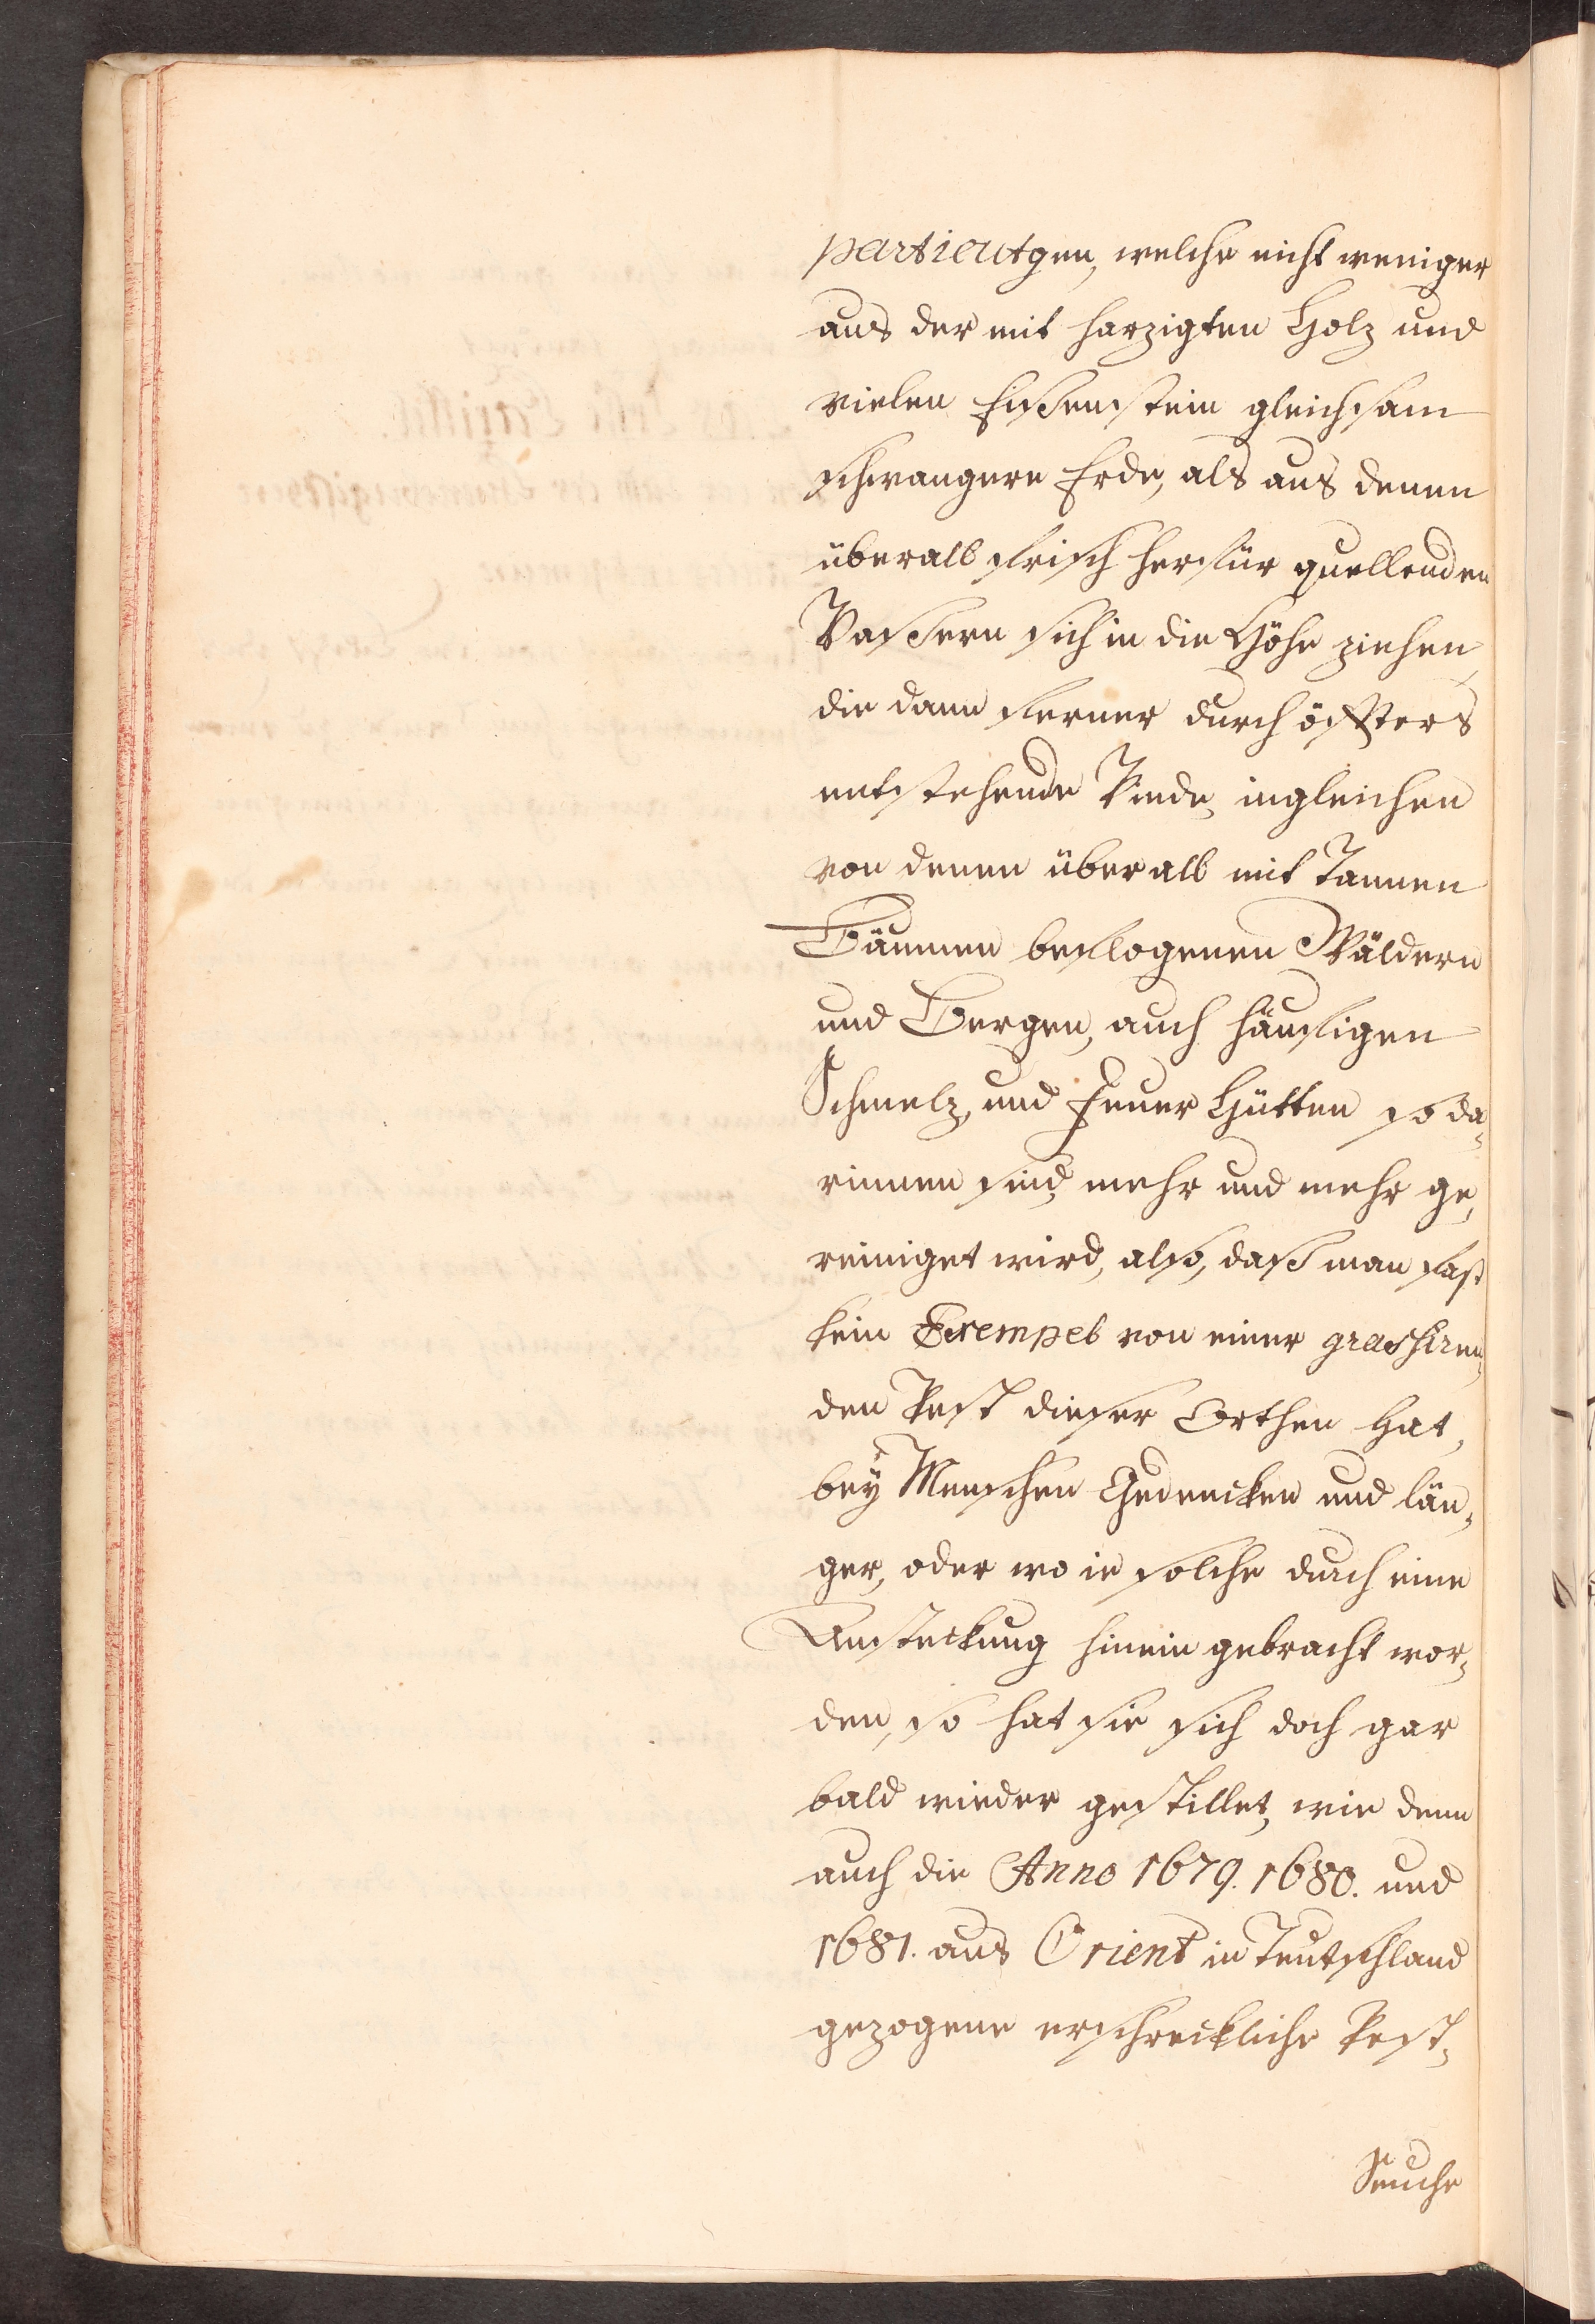 particulgen, welche nicht weniger
aus der mit harzigten Holz und
vielen Eißenstein gleichsam
schwangern Erde, als aus denen
überall frisch herfür quellenden
Waßern sich in die Höhe ziehen,
die dann ferner durch öffters
entstehende Winde, ingleichen
von denen überall mit Tannen
Bäumen beflogenen Wäldern
und Bergen, auch häufigen
Schmelz, und Feuer Hütten so da,
rinnen sind, mehr und mehr ge,
reiniget wird, also, daß man fast
kein Exempel von einer grassiren,
den Pest dieser Orthen hat,
beÿ Menschen Gedencken und län,
ger, oder wo ie solche durch eine
Ansteckung hinein gebracht wor,
den, so hat sie sich doch gar
bald wieder gestillet, wie denn
auch die Anno 1679. 1680. und
1681. aus Orient in Teutschland
gezogene erschreckliche Pest,
Seuche